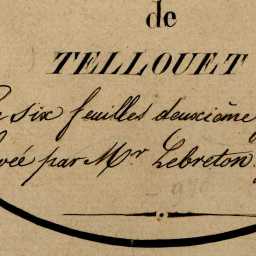 de
TELLOUET
six feuilles deuxième
vée par Mr Lebreton